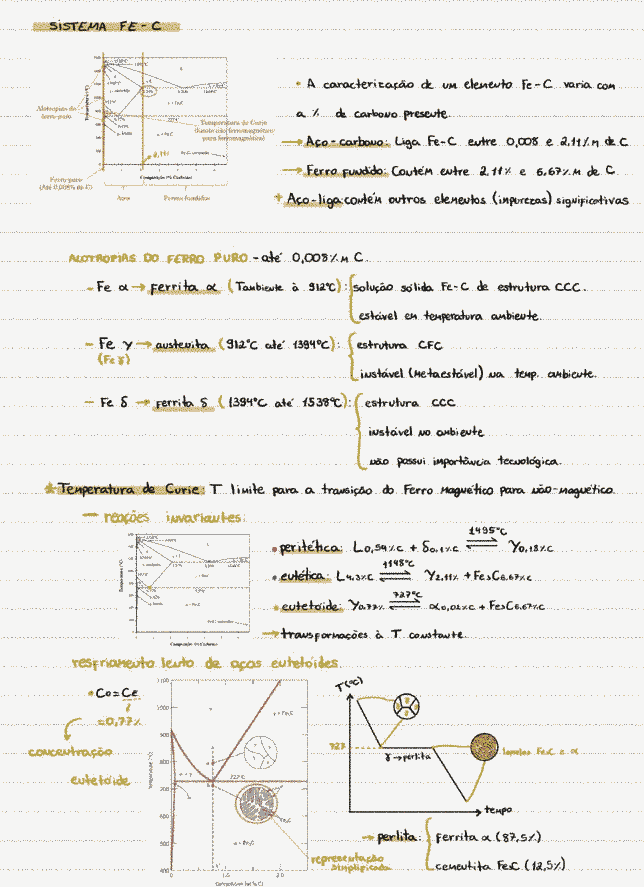 SISTEMA FE-C
• A caracterização de um elemento Fe-C varia com
a % de carbono presente.
→ Aço-carbono: Liga Fe-C entre 0,008 e 2,11%m de C
→ Ferro fundido: Contém entre 2,11% e 6,67%m de C
+ Aço-liga: contém outros elementos (impurezas) significativas
Alotropias do
ferro puro
Temperatura de Curie
(limite não ferromagnético
para ferromagnético)
2,11%
Temperatura (°C)
Composição (% Carbono)
Ferro puro
(Até 0,008% de C)
Aços
Ferros fundidos
ALOTROPIAS DO FERRO PURO - até 0,008%m C.
- Fe α → ferrita α (Tambiente à 912°C): solução sólida Fe-C de estrutura CCC.
estável em temperatura ambiente.
- Fe γ → austenita (912°C até 1394°C): estrutura CFC
(Fe γ)
instável (metaestável) na temp. ambiente.
- Fe δ → ferrita δ (1394°C até 1538°C): estrutura CCC
instável no ambiente
não possui importância tecnológica.
* Temperatura de Curie: T limite para a transição do Ferro Magnético para não-magnético.
→ reações invariantes:
• peritética: L0,54%C + δ0,1%C ⇌ 1495°C γ0,18%C
• eutética: L4,3%C ⇌ 1148°C γ2,11% + Fe3C6,67%C
• eutetóide: γ0,77% ⇌ 727°C α0,02%C + Fe3C6,67%C
→ transformações à T constante.
resfriamento lento de aços eutetóides.
• Co = Ce
= 0,77%
concentração
eutetóide
γ + Fe3C
727°C
α + Fe3C
1100
1000
900
800
700
600
500
400
0
1.0
2.0
representação
simplificada
T(°C)
727
γ → perlita
lamelas Fe3C e α
tempo
→ perlita: ferrita α (87,5%)
cementita Fe3C (12,5%)